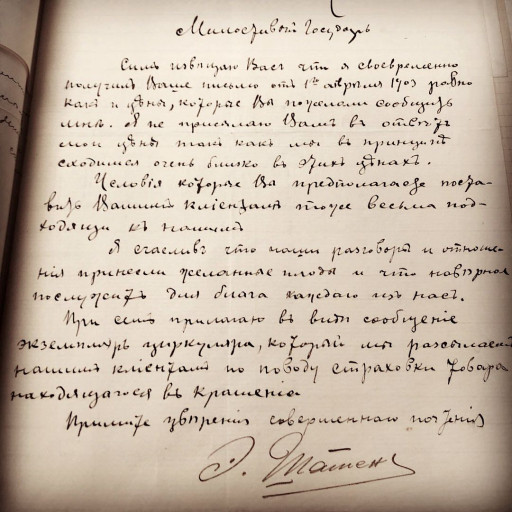 Милостивый Государь
Симъ извѣщаю Васъ что я своевременно
получилъ Ваше письмо отъ 1го апрѣля 1903 равно
какъ и цѣны, которые Вы пожелали сообщить
мнѣ. Я не присылаю Вамъ въ отвѣтъ
мои цѣны такъ какъ мы въ принципѣ
сходимся очень близко въ этихъ цѣнахъ.
Условія которые Вы предполагаете поста-
вить Вашимъ кліентамъ тоже весьма под-
ходящи къ нашимъ
Я счастливъ что наши разговоры и отноше-
нія принесли желанные плоды и что навѣрное
послужитъ для блага каждаго изъ насъ.
При семъ прилагаю въ видѣ сообщеніе
экземпляръ циркуляра, который мы разсылаемъ
нашимъ кліентамъ по поводу страховки товара
находящагося въ крашеніи.
Примите увѣренія совершеннаго почтенія